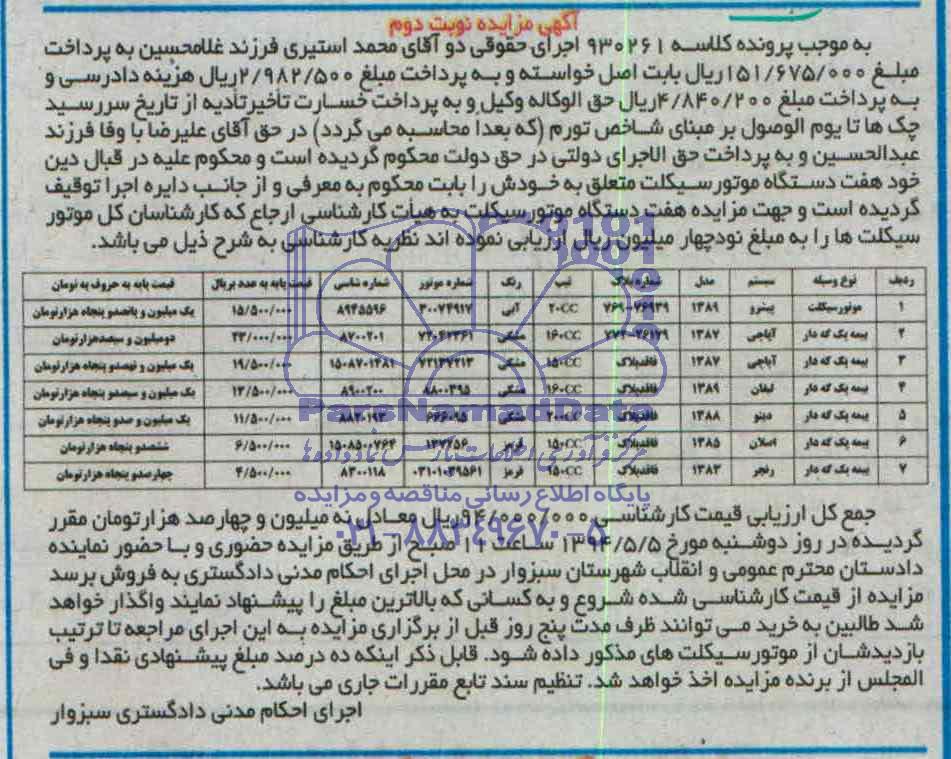 آگهی مزایده نوبت دوم
به موجب پرونده کلاسه ۹۳۰۲۶۱ اجرای حقوقی دو آقای محمد استیری فرزند غلامحسین به پرداخت
مبلغ ۱۵۱/۶۷۵/۰۰۰ریال بابت اصل خواسته و به پرداخت مبلغ ۲/۹۸۲/۵۰۰ریال هزینه دادرسی و
به پرداخت مبلغ ۴/۸۴۰/۲۰۰ریال حق الوکاله وکیل و به پرداخت خسارت تأخیرتأدیه از تاریخ سررسید
چک ها تا یوم الوصول بر مبنای شاخص تورم (که بعداً محاسبه می گردد) در حق آقای علیرضا با وفا فرزند
عبدالحسین و به پرداخت حق الاجرای دولتی در حق دولت محکوم گردیده است و محکوم علیه در قبال دین
خود هفت دستگاه موتورسیکلت متعلق به خودش را بابت محکوم به معرفی و از جانب دایره اجرا توقیف
گردیده است و جهت مزایده هفت دستگاه موتورسیکلت به هیأت کارشناسی ارجاع که کارشناسان کل موتور
سیکلت ها را به مبلغ نودچهار میلیون ریال ارزیابی نموده اند نظریه کارشناسی به شرح ذیل می باشد.
ردیف نوع وسیله سیستم مدل شماره پلاک تیپ رنگ شماره موتور شماره شاسی قیمت پایه به عدد بریال قیمت پایه به حروف به تومان
۱ موتورسیکلت پیشرو ۱۳۸۹ ۷۶۹-۲۶۹۳۹ ۲۰CC آبی ۳۰۰۷۴۹۱۷ ۸۹۴۵۵۹۶ ۱۵/۵۰۰/۰۰۰ یک میلیون و پانصدو پنجاه هزارتومان
۲ بیمه یک گه دار آپاچی ۱۳۸۷ ۷۷۳-۲۶۱۷۹ ۱۶۰CC مشکی ۷۲۰۴۲۳۶۱ ۸۷۰۰۲۰۱ ۲۳/۰۰۰/۰۰۰ دومیلیون و سیصدهزارتومان
۳ بیمه یک گه دار آپاچی ۱۳۸۷ فاقدپلاک ۱۵۰CC مشکی ۷۲۱۳۷۲۱۳ ۱۵۰۸۷۰۱۲۸۱ ۱۹/۵۰۰/۰۰۰ یک میلیون و نهصدو پنجاه هزارتومان
۴ بیمه یک گه دار لیفان ۱۳۸۹ فاقدپلاک ۱۶۰CC مشکی ۸۸۰۰۳۹۵ ۸۹۰۰۲۰۰ ۱۳/۵۰۰/۰۰۰ یک میلیون و سیصدو پنجاه هزارتومان
۵ بیمه یک گه دار دینو ۱۳۸۸ فاقدپلاک ۲۰۰CC مشکی ۶۶۶۰۹۵ ۸۸۲۰۱۹۳ ۱۱/۵۰۰/۰۰۰ یک میلیون و صدو پنجاه هزارتومان
۶ بیمه یک گه دار اصلان ۱۳۸۵ فاقدپلاک ۱۵۰CC قرمز ۱۳۷۲۵۶ ۱۵۰۸۵۰۰۷۶۴ ۶/۵۰۰/۰۰۰ ششصدو پنجاه هزارتومان
۷ بیمه یک گه دار رنجر ۱۳۸۳ فاقدپلاک ۱۵۰CC قرمز ۰۳۱۰۱۰۳۹۵۶۱ ۸۳۰۰۱۱۸ ۴/۵۰۰/۰۰۰ چهارصدو پنجاه هزارتومان
ParsNamadData
مرکز فرآوری اطلاعات پارس نماد داده ها
پایگاه اطلاع رسانی مناقصه و مزایده
۰۲۱-۸۸۳۴۹۶۷۰-۵
جمع کل ارزیابی قیمت کارشناسی ۹۴/۰۰۰/۰۰۰ریال معادل نه میلیون و چهارصد هزارتومان مقرر
گردیده در روز دوشنبه مورخ ۱۳۹۴/۵/۵ ساعت ۱۱ صبح از طریق مزایده حضوری و با حضور نماینده
دادستان محترم عمومی و انقلاب شهرستان سبزوار در محل اجرای احکام مدنی دادگستری به فروش برسد
مزایده از قیمت کارشناسی شده شروع و به کسانی که بالاترین مبلغ را پیشنهاد نمایند واگذار خواهد
شد طالبین به خرید می توانند ظرف مدت پنج روز قبل از برگزاری مزایده به این اجرای مراجعه تا ترتیب
بازدیدشان از موتورسیکلت های مذکور داده شود. قابل ذکر اینکه ده درصد مبلغ پیشنهادی نقدا و فی
المجلس از برنده مزایده اخذ خواهد شد. تنظیم سند تابع مقررات جاری می باشد.
اجرای احکام مدنی دادگستری سبزوار